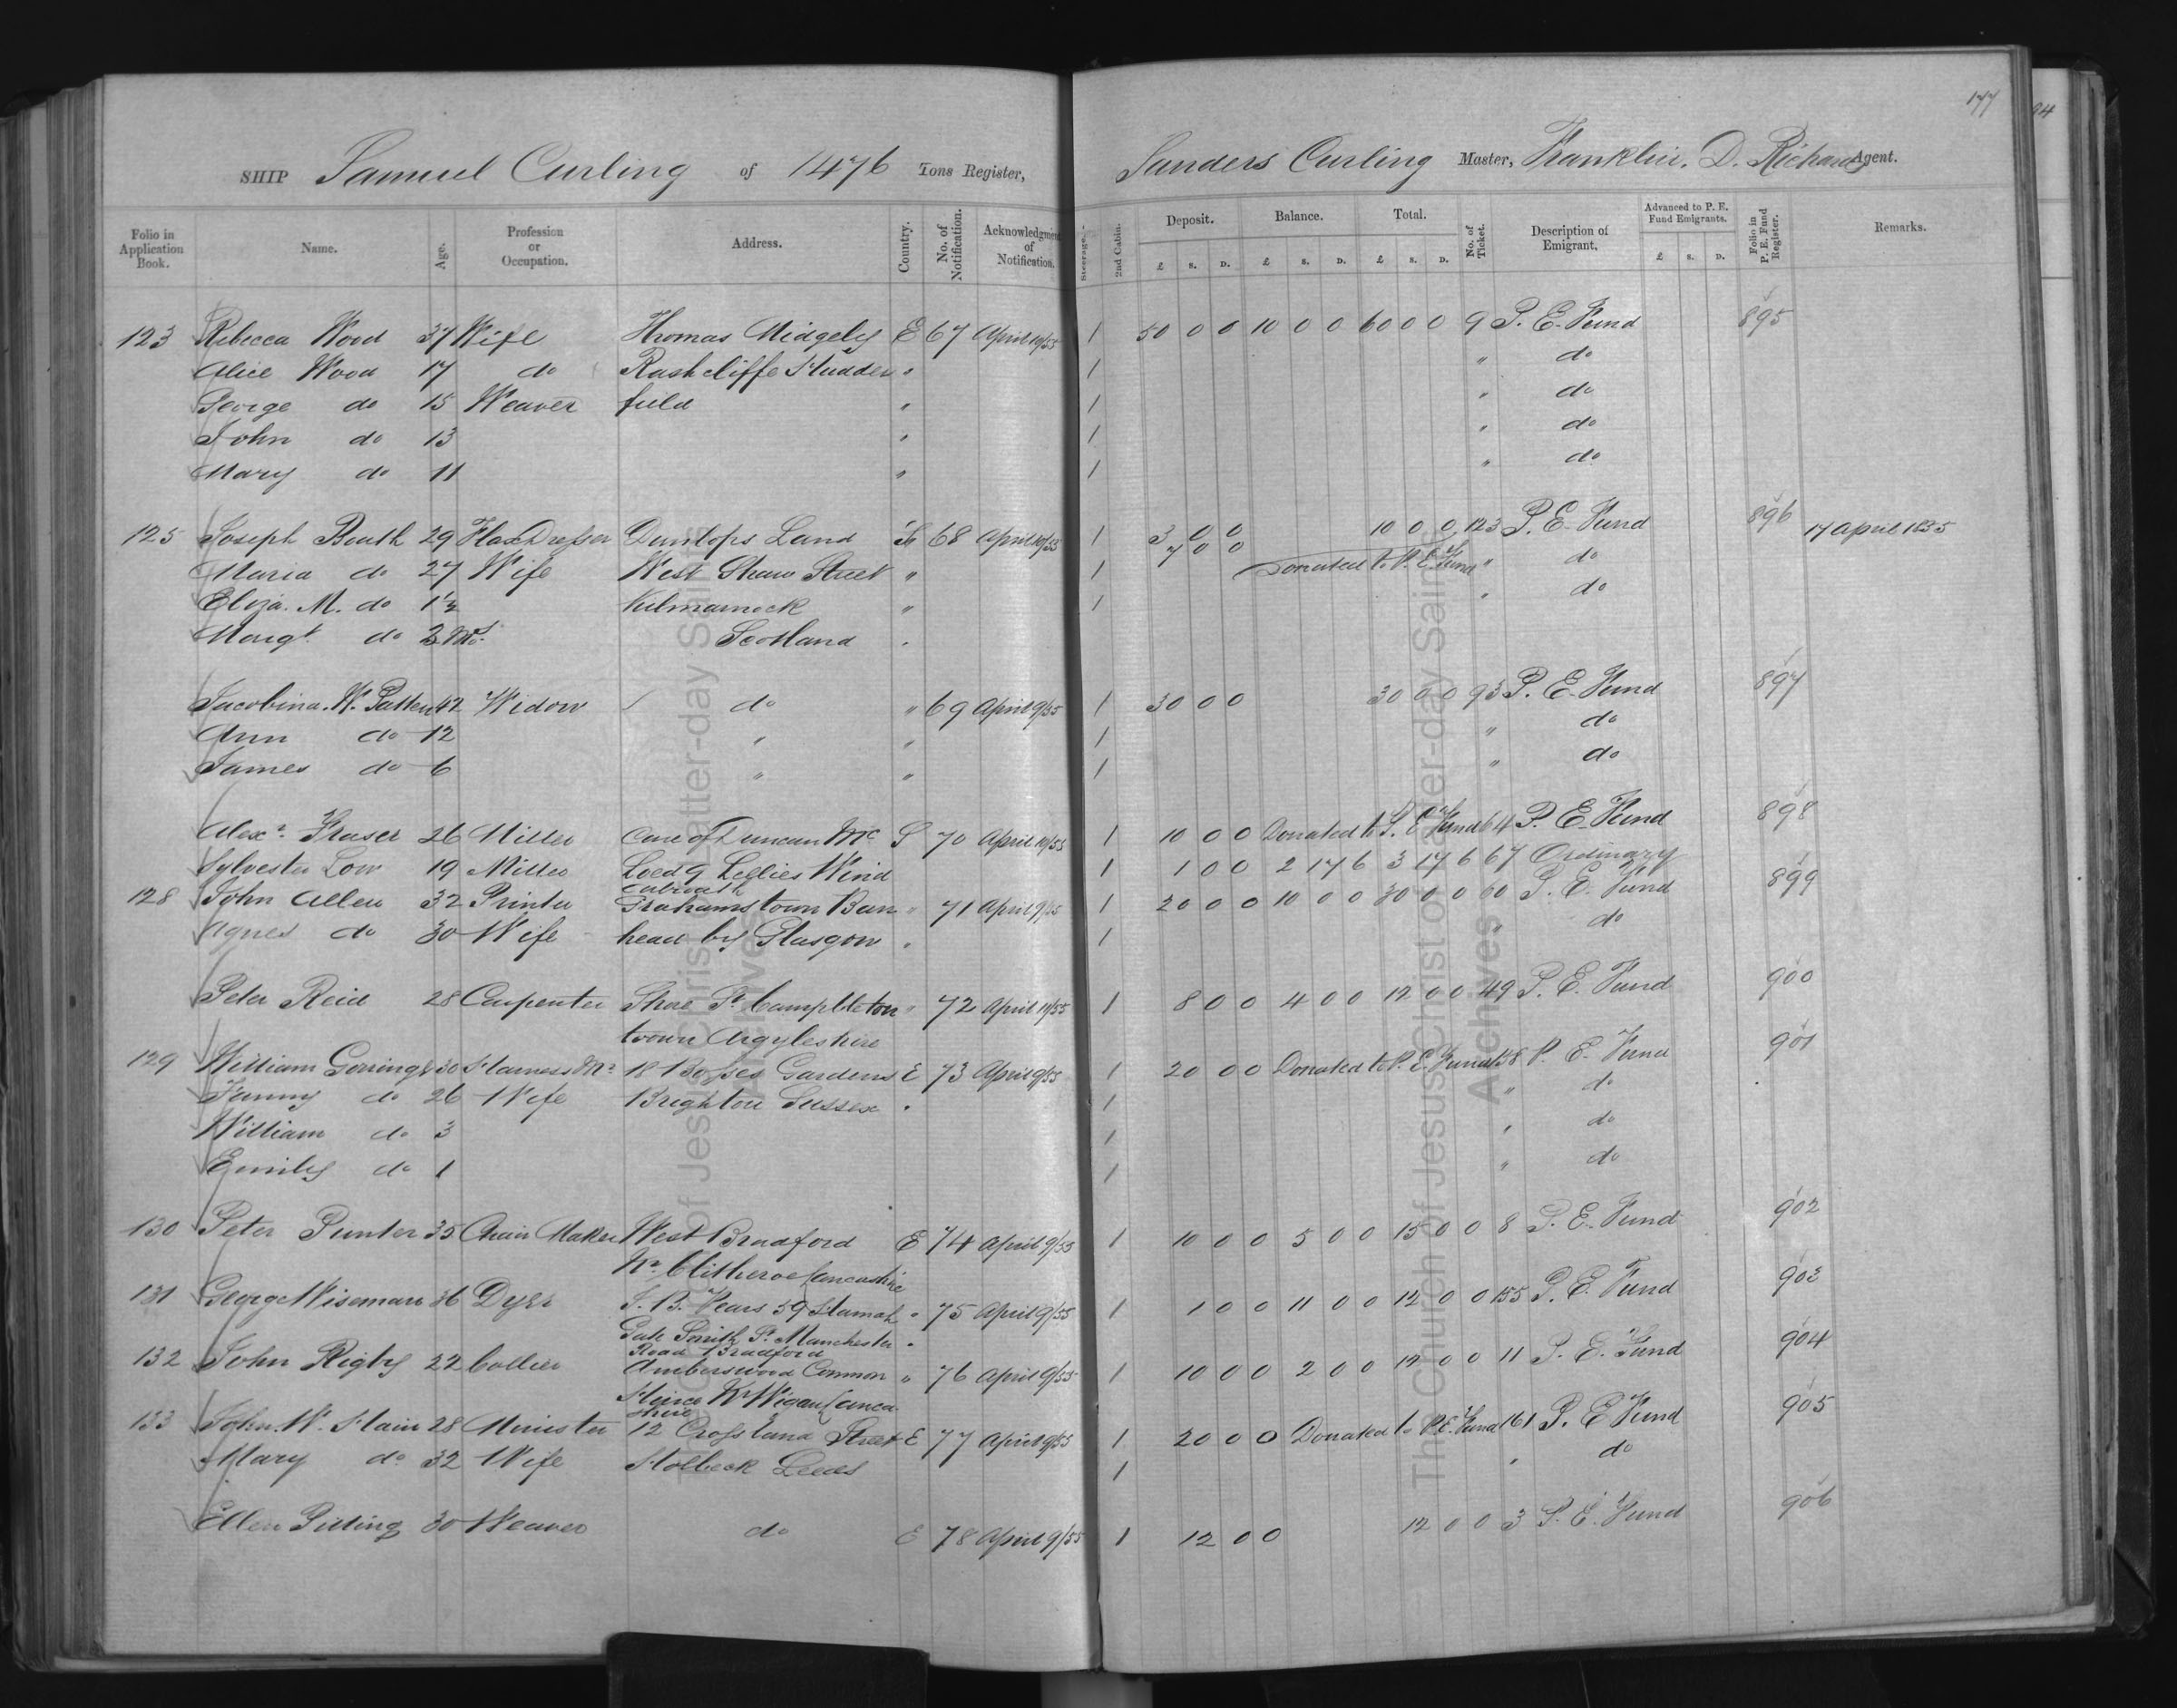 177
94
SHIP Samuel Curling of 1476 Tons Register, Sanders Curling Master, Franklin. D. Richards Agent.
Folio in Application Book. Name. Age. Profession or Occupation. Address. Country. No. of Notification. Acknowledgment of Notification. Steerage. 2nd Cabin. Deposit. £ s. D. Balance. £ s. D. Total. £ s. D. No. of Ticket. Description of Emigrant. Advanced to P. E. Fund Emigrants. £ s. D. Folio in P. E. Fund Register. Remarks.
123 Rebecca Wood 37 Wife Thomas Midgely E 67 April 10/55 1 50 0 0 10 0 0 60 0 0 9 P. E. Fund 895
Alice Wood 17 do Rashcliffe Hudders " 1 " do
George do 15 Weaver field " 1 " do
John do 13 " 1 " do
Mary do 11 " 1 " do
125 Joseph Booth 29 Flax Dresser Dunlops Land S 68 April 10/55 1 3 0 0 10 0 0 123 P. E. Fund 896 17 April 1855
7 0 0 Donated to P. E. Fund
Maria do 27 Wife West Shaw Street " 1 " do
Eliza. M. do 1½ Kilmarnock " 1 " do
Margt do 2 Mos. Scotland "
Jacobina. W. Patten 42 Widow do " 69 April 9/55 1 30 0 0 30 0 0 93 P. E. Fund 897
Ann do 12 " " 1 " do
James do 6 " " 1 " do
Alexr. Fraser 26 Miller Care of Duncan Mc S 70 April 10/55 1 10 0 0 Donated to P. E. Fund 64 P. E. Fund 898
Sylvester Low 19 Miller Leod 9 Lellies Wind 1 1 0 0 2 17 6 3 17 6 67 Ordinary
128 John Allen 32 Printer Grahamstown Barr " 71 April 9/55 1 20 0 0 10 0 0 30 0 0 60 P. E. Fund 899
Agnes do 30 Wife head by Glasgow " 1 " do
Peter Reid 28 Carpenter Shore St. Campbleton " 72 April 11/55 1 8 0 0 4 0 0 12 0 0 49 P. E. Fund 900
town Argyleshire
129 William Gorringe 30 Harness Mr 18 Bosses Gardens E 73 April 9/55 1 20 0 0 Donated to P. E. Fund 158 P. E. Fund 901
Fanny do 26 Wife Brighton Sussex " 1 " do
William do 3 1 " do
Emily do 1 1 " do
130 Peter Punter 35 Chair Maker West Bradford E 74 April 9/55 1 10 0 0 5 0 0 15 0 0 8 P. E. Fund 902
Nr Clitheroe Lancashire
131 George Wiseman 36 Dyer " 75 April 9/55 1 1 0 0 11 0 0 12 0 0 155 P. E. Fund 903
Gate Smith St. Manchester
Road Bradford
132 John Rigby 22 Collier Amberswood Common " 76 April 9/55 1 10 0 0 2 0 0 12 0 0 11 P. E. Fund 904
Nr Wigan Lanca
shire
133 John. W. Hain 28 Minister 12 Crossland Street E 77 April 9/55 1 20 0 0 Donated to P. E. Fund 161 P. E. Fund 905
Mary do 32 Wife Holbeck Leeds 1 " do
Ellen Pilling 30 Weaver do E 78 April 9/55 1 12 0 0 12 0 0 3 P. E. Fund 906
The Church of Jesus Christ of Latter-day Saints
Archives